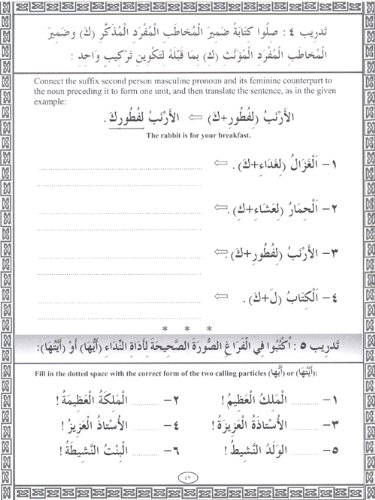 تَدريب ٤ : صِلُوا كِتابَةً ضَميرَ الْمُخاطَبِ الْمُفْرَدِ الْمُذَكَّرِ (كَ) وَضَميرَ
الْمُخاطَبِ الْمُفْرَدِ الْمُؤَنَّثِ (كِ) بِما قَبْلَهُ لِتَكْوينِ تَرْكيبٍ واحِدٍ :
Connect the suffix second person masculine pronoun and its feminine counterpart to
the noun preceding it to form one unit, and then translate the sentence, as in the given
example:
الأَرْنَبُ (لِفُطُورِ+كَ) ⇐ الأَرْنَبُ لِفُطُورِكَ.
The rabbit is for your breakfast.
١- اَلْغَزَالُ (لِغَدَاءِ+كَ) . ⇐
٢- اَلْحِمَارُ (لِعَشَاءِ+كَ). ⇐
٣- الأَرْنَبُ (لِفُطُورِ+كِ). ⇐
٤- اَلْكِتَابُ (لَ+كِ) . ⇐
* * *
تَدريب ٥ : اُكْتُبُوا فِي الْفَرَاغِ الصُّورَةَ الصَّحيحَةَ لِأَدَاةِ النِّدَاءِ (أَيُّهَا) أَوْ (أَيَّتُهَا):
Fill in the dotted space with the correct form of the two calling particles (أَيُّهَا) or (أَيَّتُهَا):
١- ........ الْمَلِكُ الْعَظِيمُ ! ٢- ........ الْمَلِكَةُ الْعَظِيمَةُ !
٣- ........ الأُسْتاذَةُ الْعَزِيزَةُ ! ٤- ........ الأُسْتاذُ الْعَزِيزُ !
٥- ........ الْوَلَدُ النَّشِيطُ ! ٦- ........ الْبِنْتُ النَّشِيطَةُ !
٤٧